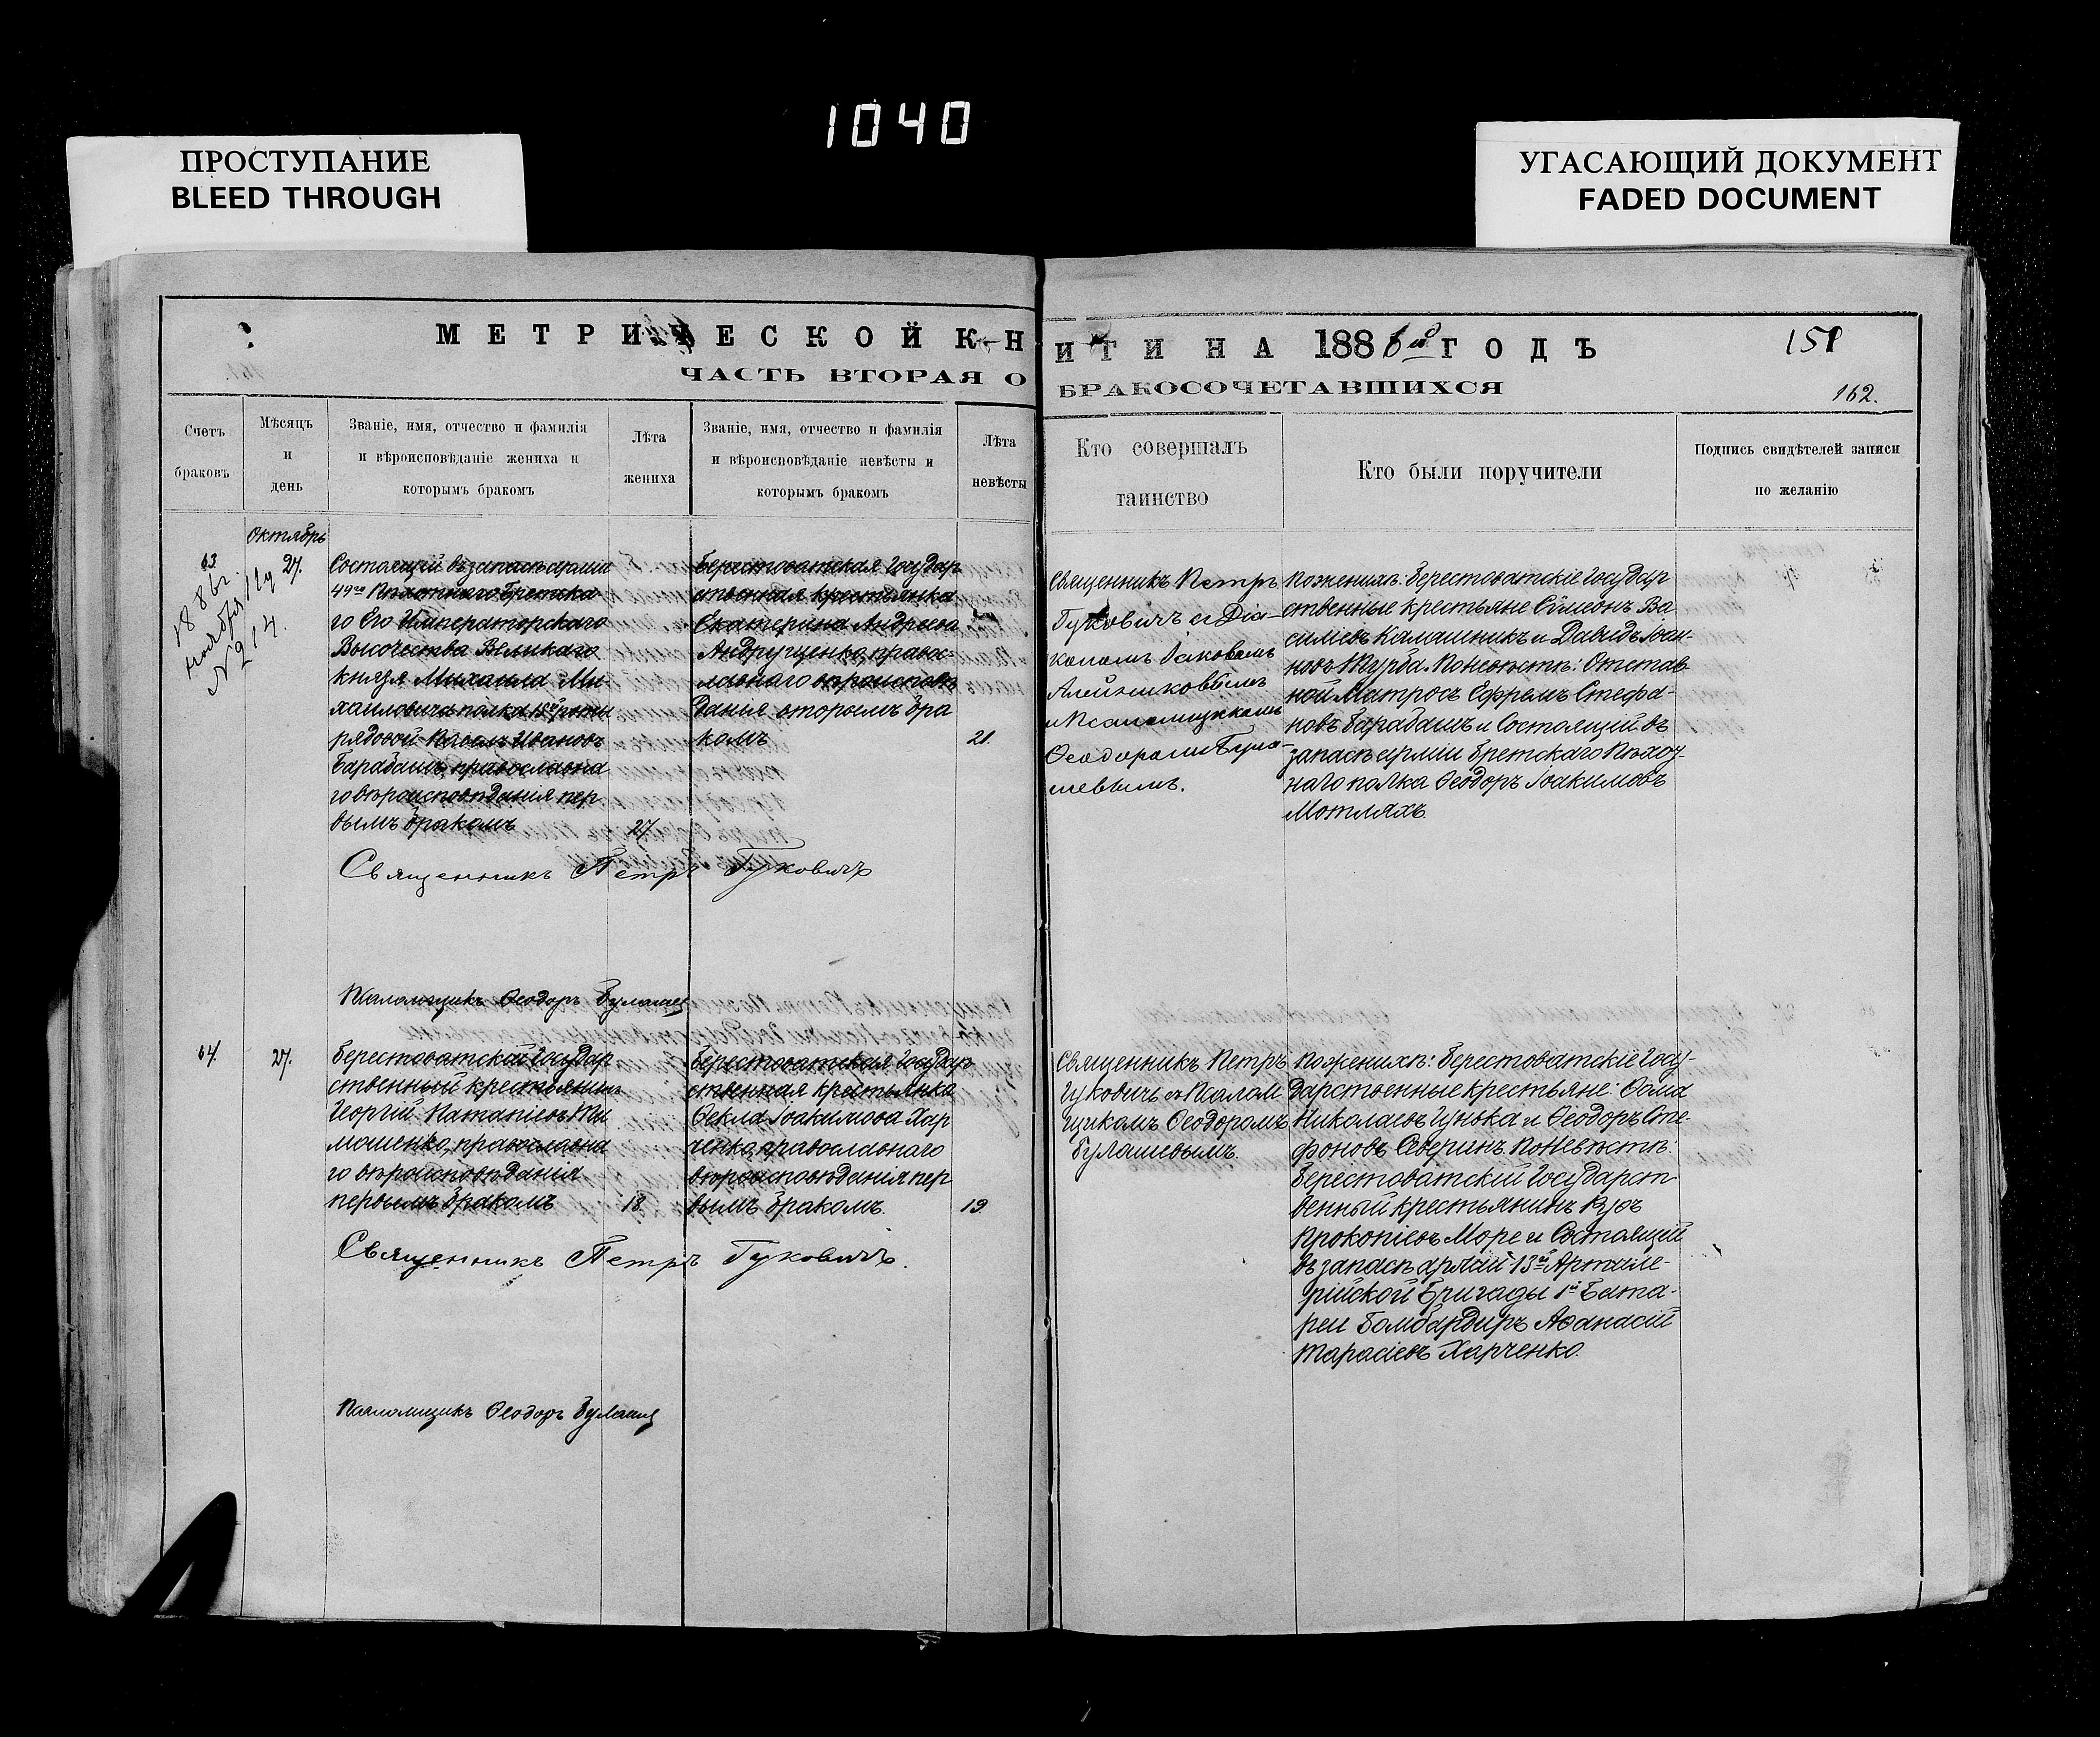 1040
ПРОСТУПАНИЕ
BLEED THROUGH
УГАСАЮЩИЙ ДОКУМЕНТ
FADED DOCUMENT
МЕТРИЧЕСКОЙ КНИГИ НА 1886й ГОДЪ
151
ЧАСТЬ ВТОРАЯ О БРАКОСОЧЕТАВШИХСЯ
162.
Счетъ
браковъ
Мѣсяцъ
и
день
Званіе, имя, отчество и фамилія
и вѣроисповѣданіе жениха и
которымъ бракомъ
Лѣта
жениха
Званіе, имя, отчество и фамилія
и вѣроисповѣданіе невѣсты и
которымъ бракомъ
Лѣта
невѣсты
Кто совершалъ
таинство
Кто были поручители
Подпись свидѣтелей записи
по желанію
Октябрь
63
27.
1886г.
ноября 11
N 214.
Состоящій въ запасѣ арміи
49го Пѣхотнаго Брестска
го Его Императорскаго
Высочества Великаго
Князя Михаила Ми-
хаиловича полка 15й роты
рядовой Павелъ Ивановъ
Барабашъ, православна
го вѣроисповѣданія пер
вымъ бракомъ
27.
Берестоватская Государ
ственная крестьянка
Екатерина Андреева
Андрущенко, право
славнаго вѣроисповѣ
данія вторымъ бра
комъ
21.
Священникъ Петръ
Гуковичъ съ Діа-
кономъ Іаковомъ
Алейниковымъ
и Псаломщикомъ
Ѳеодоромъ Була-
шевымъ.
По женихѣ: Берестоватскіе Государ
ственные крестьяне Сѵмеонъ Ва
силіевъ Калашникъ и Давидъ Іоан-
новъ Шурба. По невѣстѣ: Отстав
ной Матросъ Ефремъ Стефа-
новъ Барабашъ и Состоящій въ
запасѣ арміи Брестскаго Пѣхот-
наго полка Ѳеодоръ Іоакимовъ
Мотляхъ.
Священникъ Петръ Гуковичъ
Псаломщикъ Ѳеодоръ Булашев
64.
27.
Берестоватскій Государ
ственный крестьянинъ
Георгій Натаніевъ Ти
мошенко, православна
го вѣроисповѣданія
первымъ бракомъ
18.
Берестоватская Государ
ственная крестьянка
Ѳекла Іоакимова Хар
ченко, православнаго
вѣроисповѣданія пер
вымъ бракомъ.
19.
Священникъ Петръ
Гуковичъ съ Псалом
щикомъ Ѳеодоромъ
Булашевымъ.
По женихѣ: Берестоватскіе Госу-
дарственные крестьяне: Ѳома
Николаевъ Цунька и Ѳеодоръ Сте-
фановъ Северинъ. По невѣстѣ:
Берестоватскій Государст
венный крестьянинъ Киръ
Прокопіевъ Море и Состоящій
въ запасѣ арміи 13й Артиле-
рійской Бригады 1й Бата-
реи Бомбардиръ Аѳанасій
Тарасіевъ Харченко.
Священникъ Петръ Гуковичъ.
Псаломщикъ Ѳеодоръ Булашев